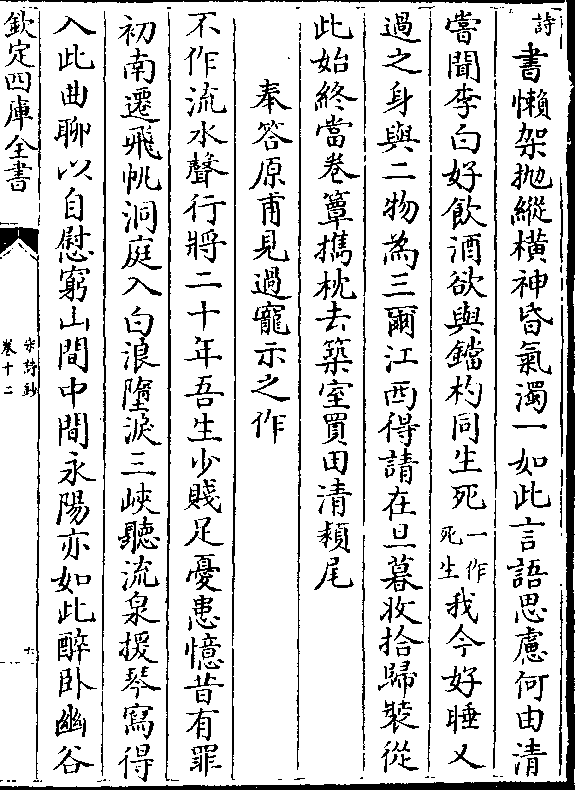 詩書懶架抛縱橫神昏氣濁一如此言語思慮何由清
嘗聞李白好飲酒欲與鐺杓同生死一作死生我今好睡又
過之身與二物為三爾江西得請在旦暮收拾歸裝從
此始終當卷簟擕枕去築室買田清潁尾
奉答原甫見過寵示之作
不作流水聲行將二十年吾生少賤足憂患憶昔有罪
初南遷飛帆洞庭入白浪墮淚三峽聽流泉援琴寫得
入此曲聊以自慰窮山間中間永陽亦如此醉卧幽谷
欽定四庫全書
宋詩鈔
卷十二